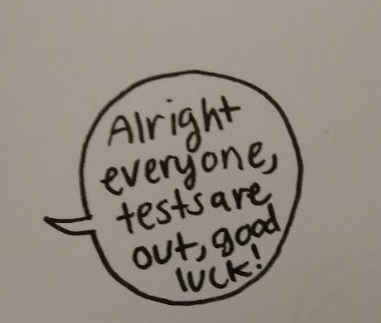 Alright
everyone,
tests are
out, good
luck!